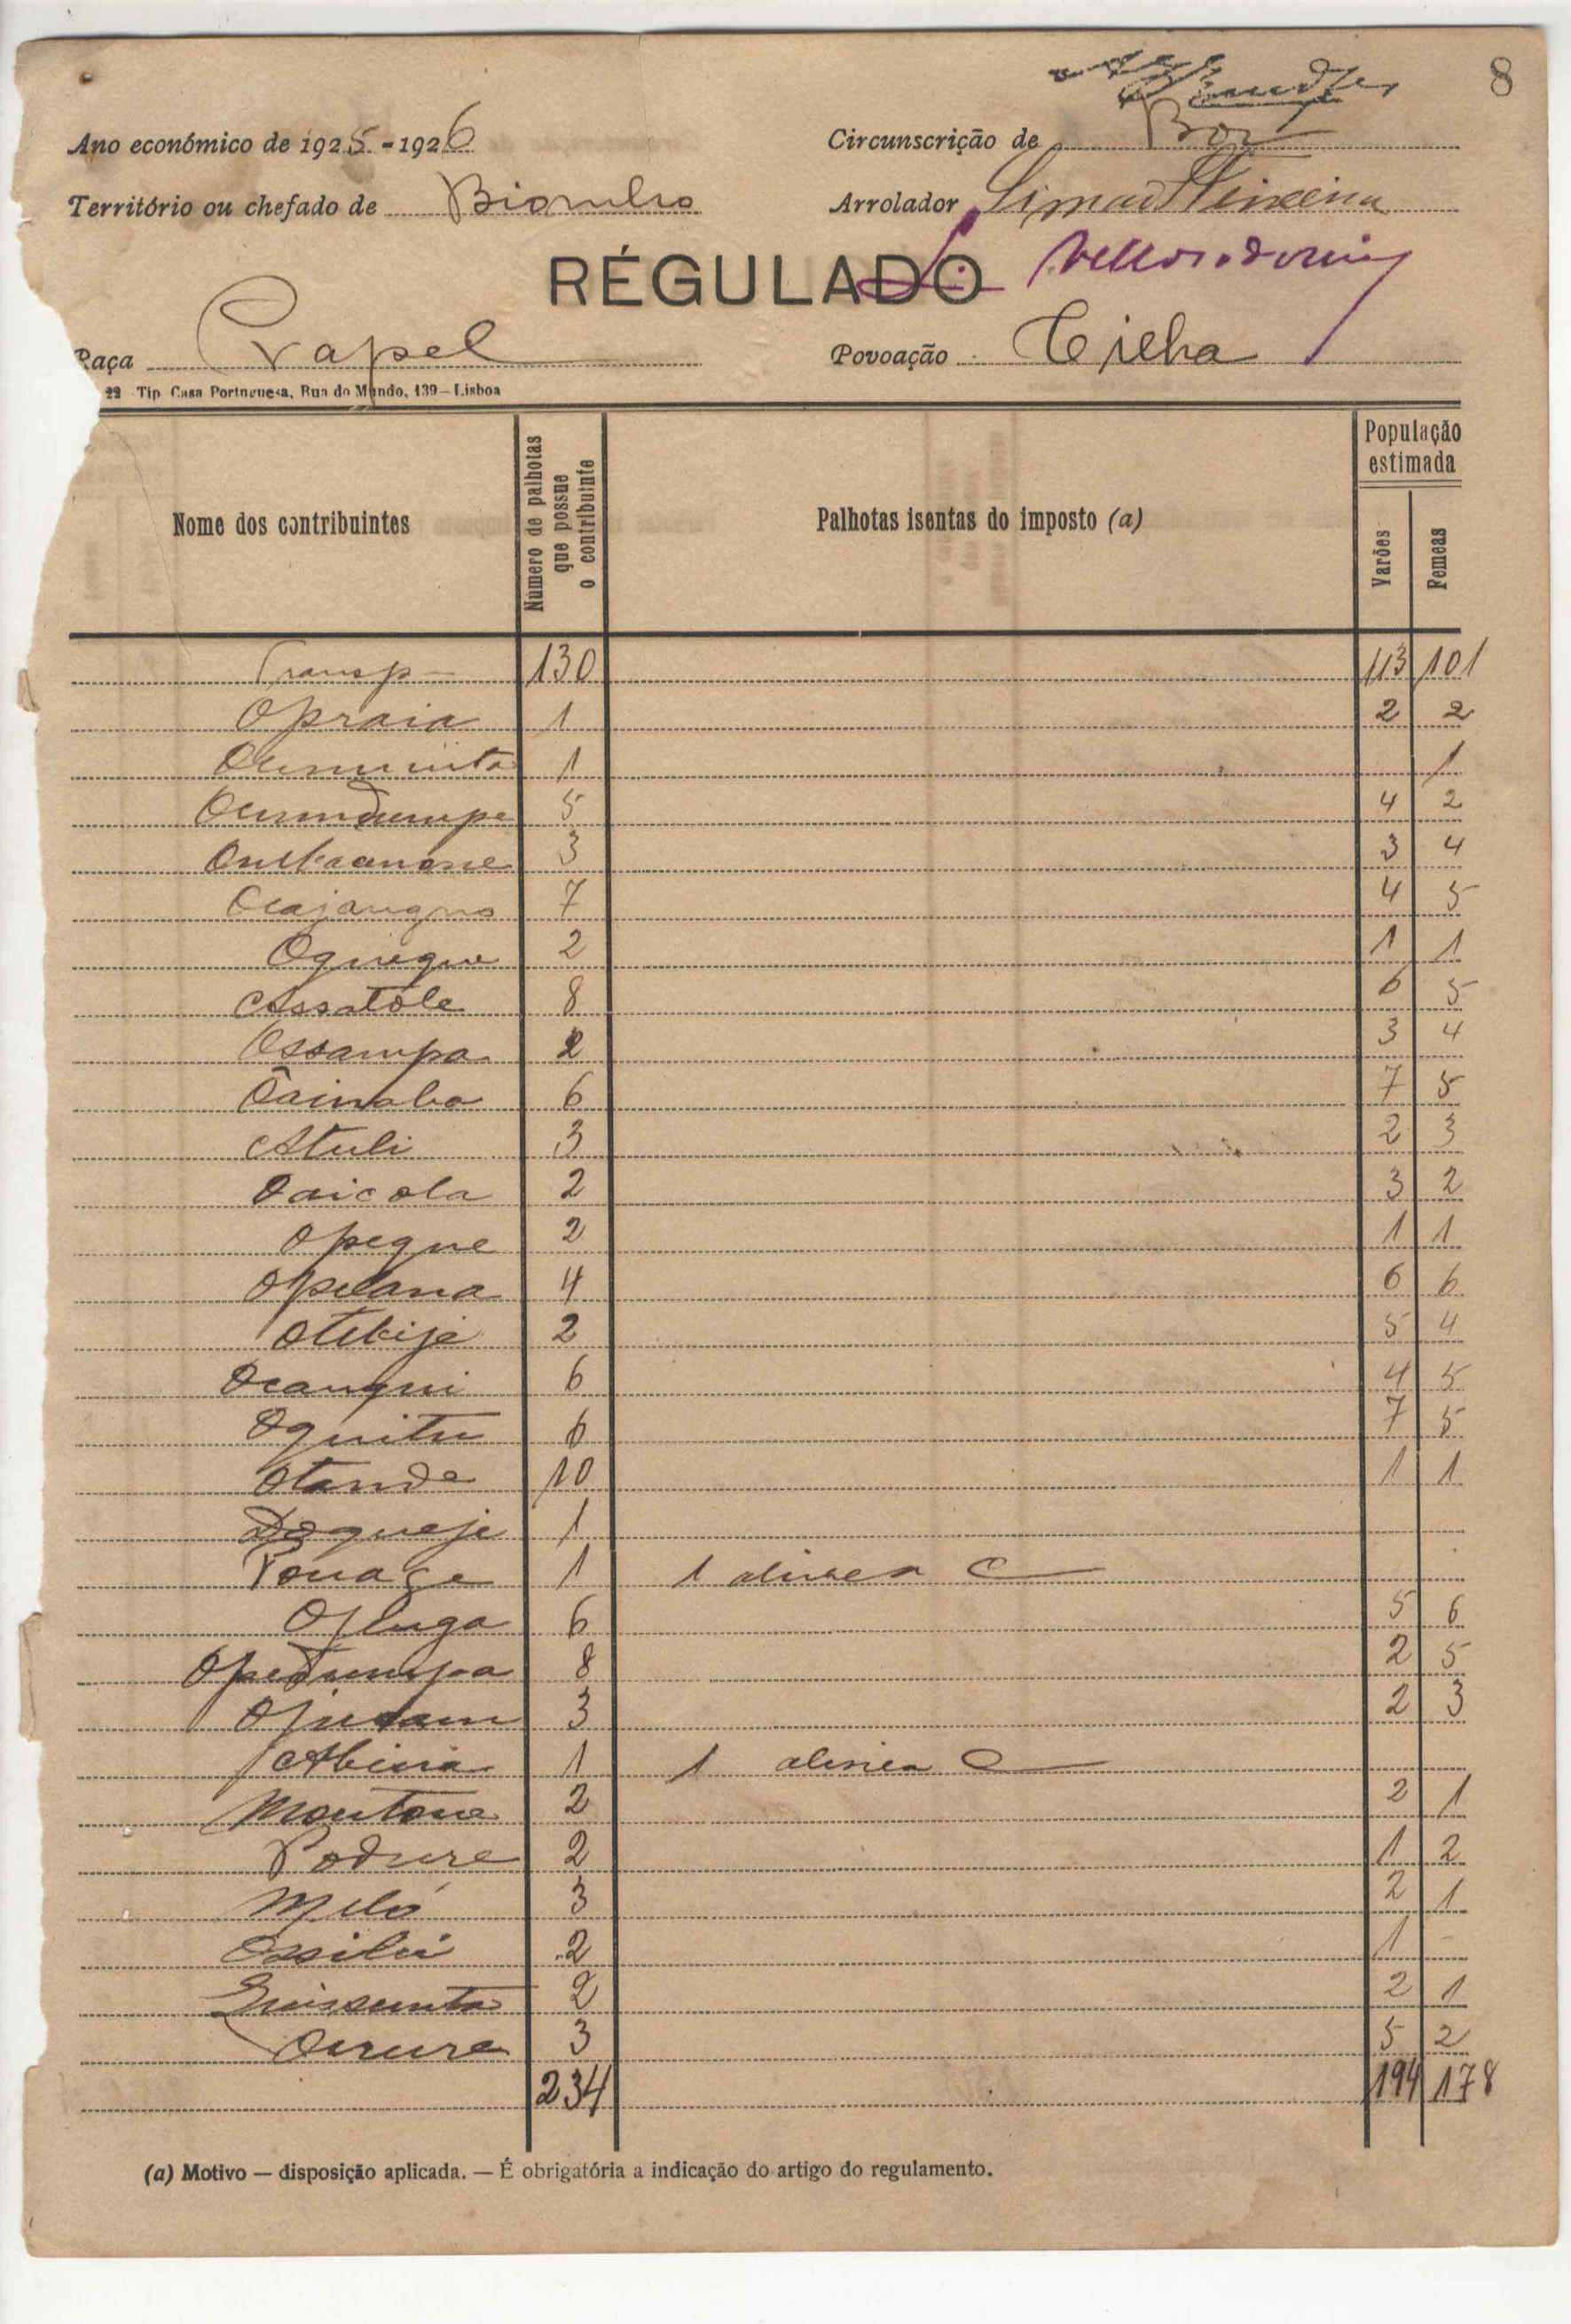 8
Ano económico de 1925-1926 Circunscrição de Bor
Território ou chefado de Biombo Arrolador Teixeira
RÉGULADO
Raça Papel Povoação Tilha
22 Tip Casa Portuguesa, Rua do Mundo, 139—Lisboa
Nome dos contribuintes Numero de palhotas que possue o contribuinte Palhotas isentas do imposto (a) População estimada
Varões Femeas
Transp— 130 113 101
Opraia 1 2 2
1 1
5 4 2
3 3 4
7 4 5
Oguegue 2 1 1
Assatóle 8 6 5
Ossampa 2 3 4
6 7 5
Atuli 3 2 3
Oaicola 2 3 2
Opegue 2 1 1
Opelana 4 6 6
Otebije 2 5 4
Ocangui 6 4 5
Oquitu 6 7 5
Otanda 10 1 1
Doqueje 1
1 1 alinea C
6 5 6
8 2 5
3 2 3
1 1 alinea C
Montone 2 2 1
Podure 2 1 2
Meló 3 2 1
2 1 -
2 2 1
3 5 2
234 194 178
(a) Motivo — disposição aplicada. — É obrigatória a indicação do artigo do regulamento.